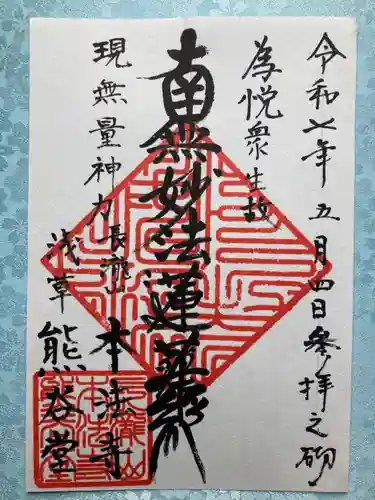 令和七年五月四日参拝之砌
為悦衆生故
南無妙法蓮華経
現無量神力
長瀧山
本法寺
浅草
熊谷堂